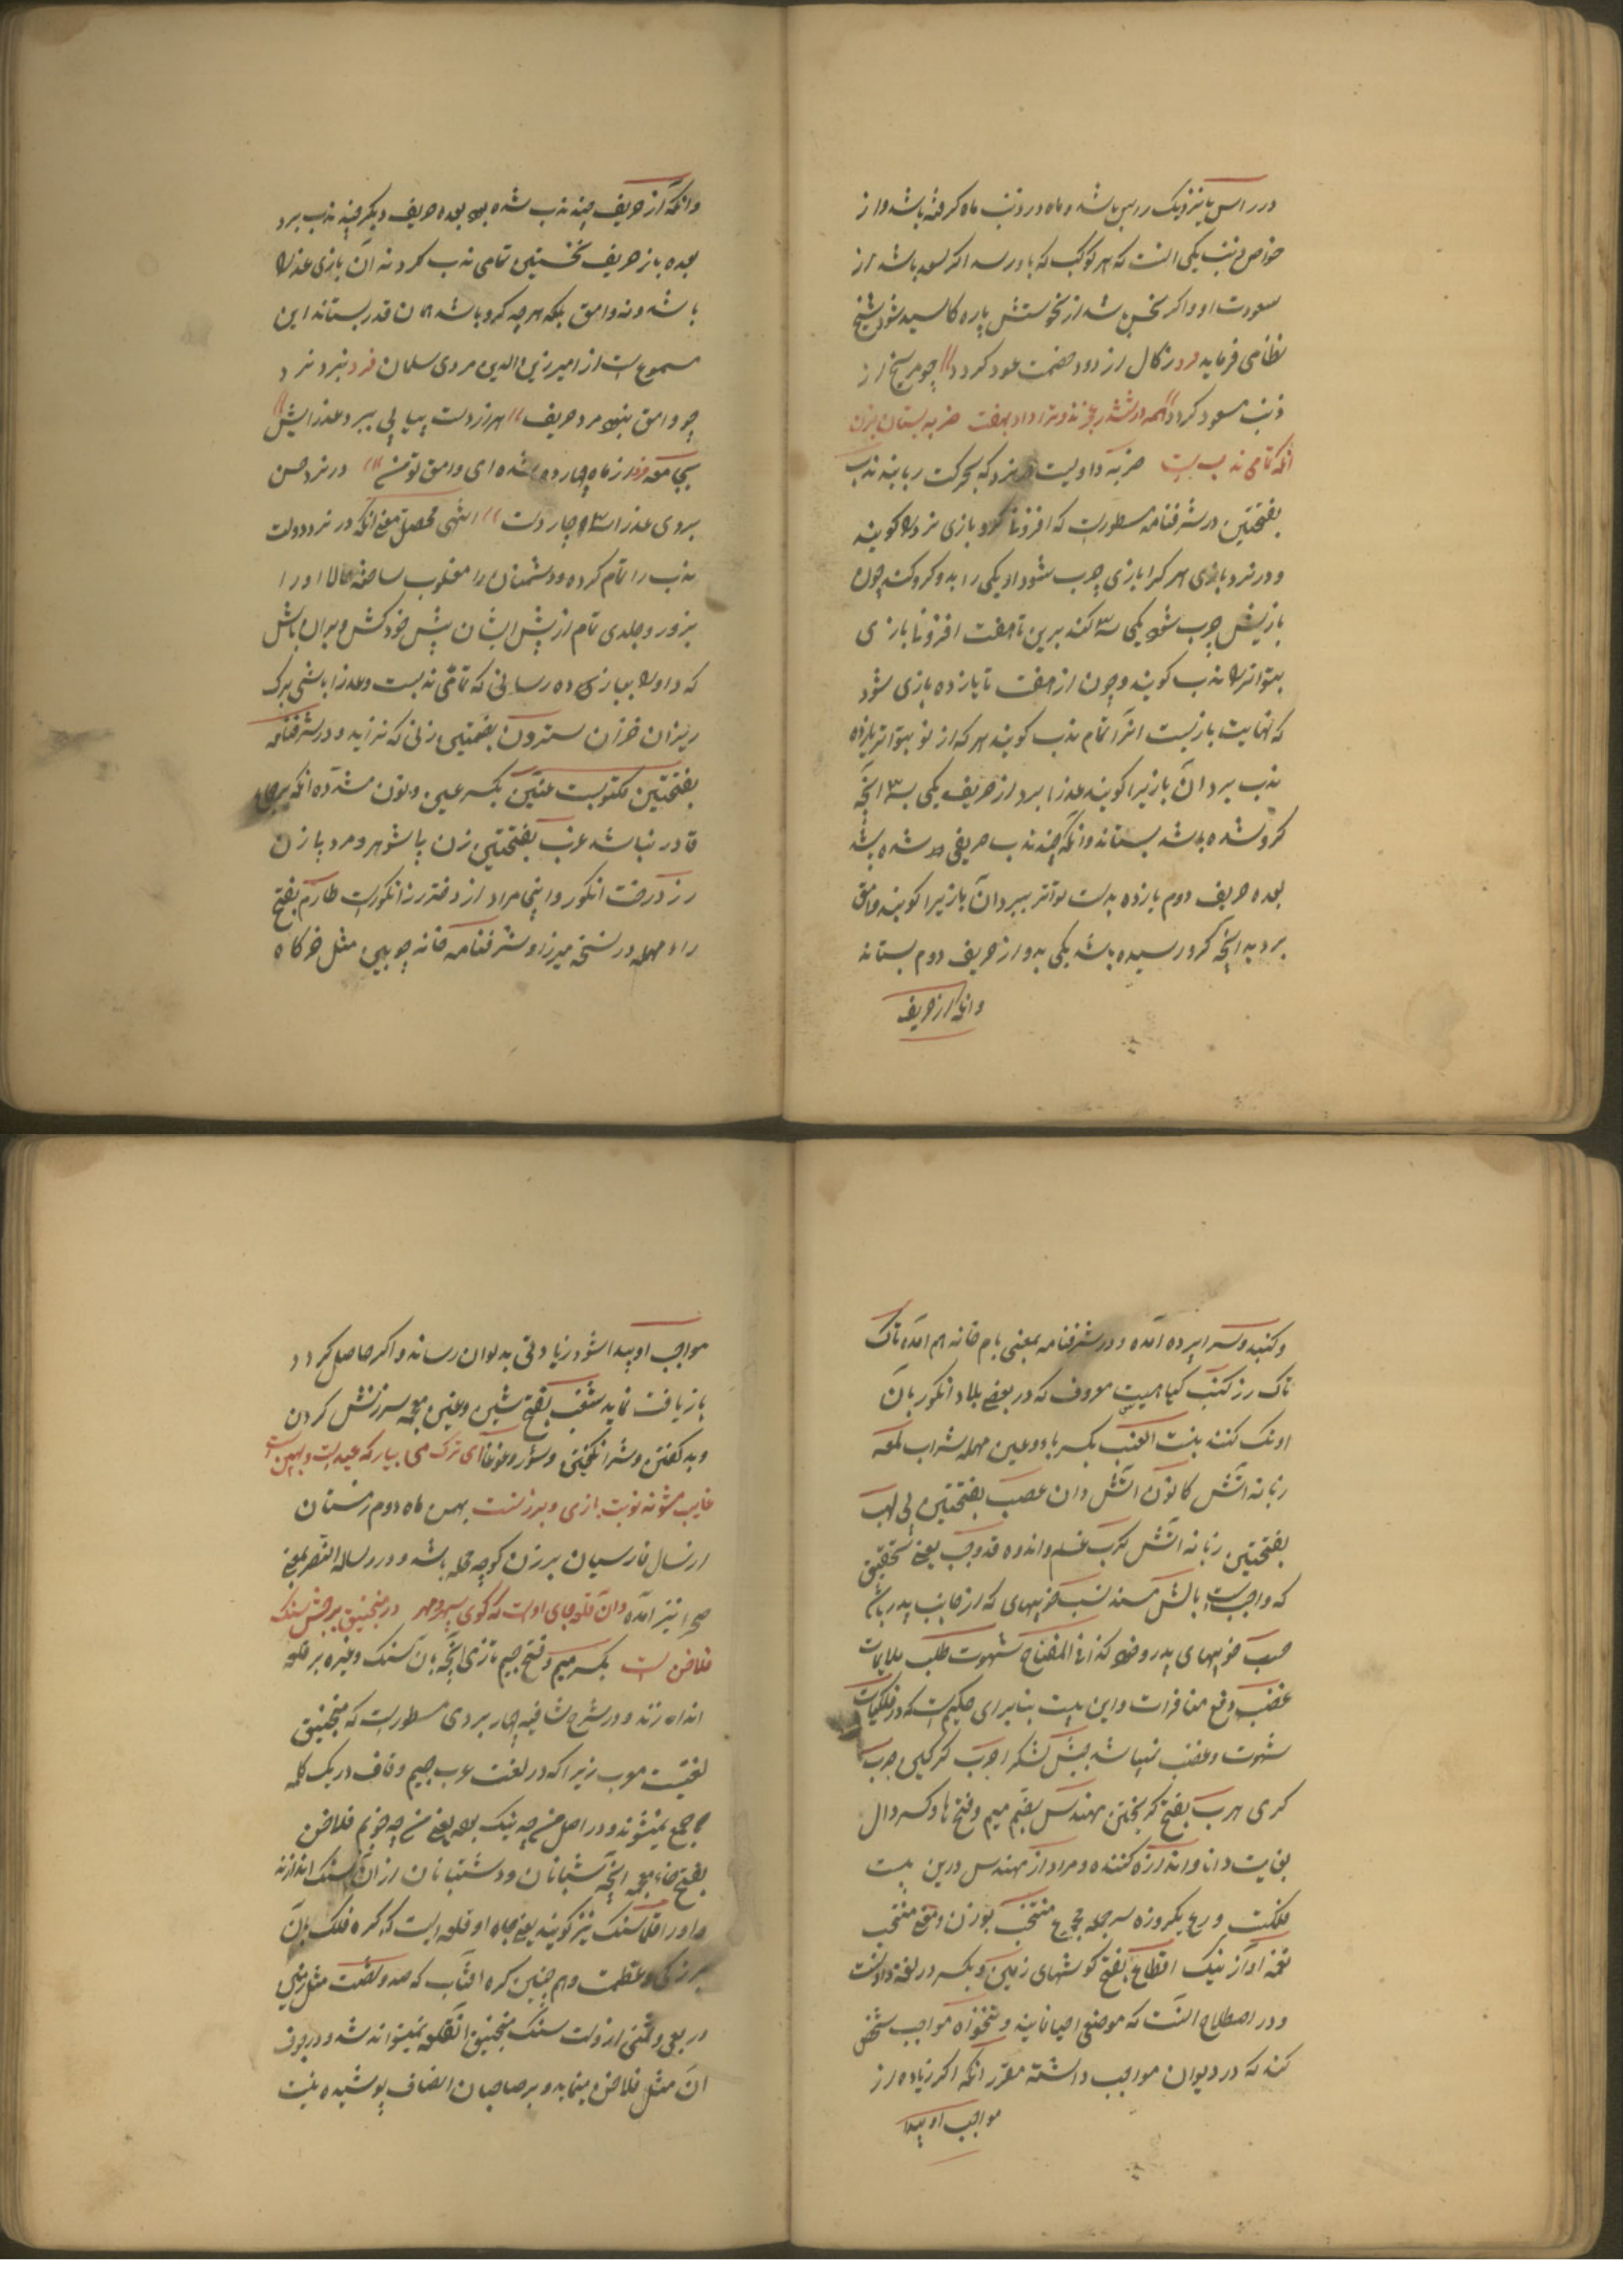 در راس یا نزدیک راس باشد و ماه در ذنب ماه گرفته باشد و از
خواص ذنب یکی آنست که هر کوکب که با و رسد اگر سعد باشد از
سعودت او و اگر نحس باشد از نحوستش پاره کا شود شیخ
نظامی فرماید زکال از دود خصمت عود کردد چو مریخ از
ذنب مسعود کردد همه در ششدر عجزند و ترا داو بهفت ضربه بستان بزن
انکه تمامی ندب است ضربه داویست در نرد که بحرکت ربایند ندب
بفتحتین در شرفنامه مسطورست که افزونی کرو بازی نرد را کویند
و در نرد بازی هر کرا بازی چرب شود او یکی را بدو کرو کند چون
بازیش چرب شود یکی سه کند برین تا هفت افزونا بازی
بتواتر را ندب کویند و چون از هفت تا یازده بازی شود
که نهایت بازیست انرا تمام ندب کویند هر که از نو بتواتر یازده
ندب برد آن بازیرا کویند عذرا برد از حریف یکی بسه انچه
کرو شده باشد بستاند و انکه چند ندب حریفی شده باشد
بعده حریف دوم یازده بدست تواتر ببرد آن بازیرا کویند وامق
برد به انچه کرو رسیده باشد یکی بدو از حریف دوم بستاند
وانکه از حریف
وانکه از حریف چند ندب شده بود بعده حریف دیکر چند ندب برد
بعده باز حریف نخستین تمامی ندب کرد نه آن بازی عذرا
باشد و نه وامق بلکه هرچه کرو باشد همان قدر بستاند این
مسموع است از امیر زین الدین هروی سلمان فرد نبرد نرد
چو وامق بنهد مرد حریف هر از دست پیاپی ببرد عذرایش
بجامعه فرد از ماه چهارده شده ای وامق تو من در نرد حسن
بروی عذرا سه و چار دست انتهی محصل معنی انکه در نرد دولت
ندب را تمام کرده و دشمنان را مغلوب ساخته حالا اورا
بزور و جلدی تمام از پیش ایشان پیش خود کش و بران باش
که داو را ببازی ده رسانی که تمامی ندبست و عذرا باشی برک
ریزان خزان سترون بفتحتین زنی که نزاید و در شرفنامه
بفتحتین مکتوبست عنین بکسر عین و نون مشدده انکه بر جماع
قادر نباشد عزب بفتحتین زن بیشوهر و مرد بیزن
رز درخت انکور و اینجا مراد از دختر رز انکورست طارم بفتح
راء مهمله در نسخه میرزا و شرفنامه خانه چوبین مثل خرکاه
و کنبد و سراپرده آمده و در شرفنامه بمعنی بام خانه هم آمده تاک
تاک رز کنب کیاهیست معروف که در بعضی بلاد انکور بان
اونک کنند بنت العنب بکسر باء و عین مهمله شراب لمعه
زبانه آتش کانون آتش دان عصب بفتحتین پی لهب
بفتحتین زبانه آتش کرب غم و اندوه قد وجب یعنی تحقیق
که واجبست بالش مسند نسب خوبیهای که از جانب پدر باشد
حسب خوبیهای پدر و خود کذا فی المفتاح شهوت طلب ملایمات
غضب دفع منافرات و این بیت بنا برای حکیمست که در فلکیات
شهوت و غضب نباشد جیش لشکر اجرب کرکین جرب
کری هرب بفتح کریختن مهندس بضم میم و فتح ها و کسر دال
بغایت دانا و اندازه کننده و مراد از مهندس درین بیت
فلکست و ربع یکروزه سر جمله مجموع منتخب بوزن و معنی منتخب
نغمه آواز نیک اقطاع بفتح کوشهای زمین و بکسر در لغة دادنست
و در اصطلاح آنست که موضعی احیانا بینه و تنخواه مواجب شخص
کنند که در دیوان مواجب داشته مقرر آنکه اکر زیاده از
مواجب او پیدا
مواجب او پیدا شود زیادتی بدیوان رساند و اکر حاصل کردد
بازیافت نماید شغب بفتح شین و غین معجمه سرزنش کردن
و بد کفتن و شر انکیختن و شور و غوغا ای ترک می بیار که عیدست و بهمن است
غایب مشو نه نوبت بازی و برزنست بهمن ماه دوم زمستان
از سال فارسیان برزن کوچه محله باشد و در رساله النصر بمعنی
صحرا نیز آمده و آن قلعهای اوست که کوی سپهر و مهر در منجنیق برجش سنک
فلاخن است بکسر میم و فتح جیم تازی انچه بان سنک و غیره بر قلعه
اندازند و در شرح شافیه چاربردی مسطورست که منجنیق
لغتیست معرب زیرا که در لغت عرب جیم و قاف در یک کلمه
جمع نمیشوند و در اصل من چه نیک بود یعنی من چه خوبم فلاخن
بفتح خاء معجمه انچه شبانان و دشتبانان از آن سنک اندازند
و اورا قلاسنک نیز کویند یعنی جاه او قلعه ایست که کره فلک بان
بزرکی و عظمت و هم چنین کره آفتاب که صد و شصت مثل زمین
و ربعی و ثمنی ازوست سنک منجنیق آنقلعه نمیتواند شد و در جوف
آن مثل فلاخن مینماید و بر صاحبان انصاف پوشیده نیست